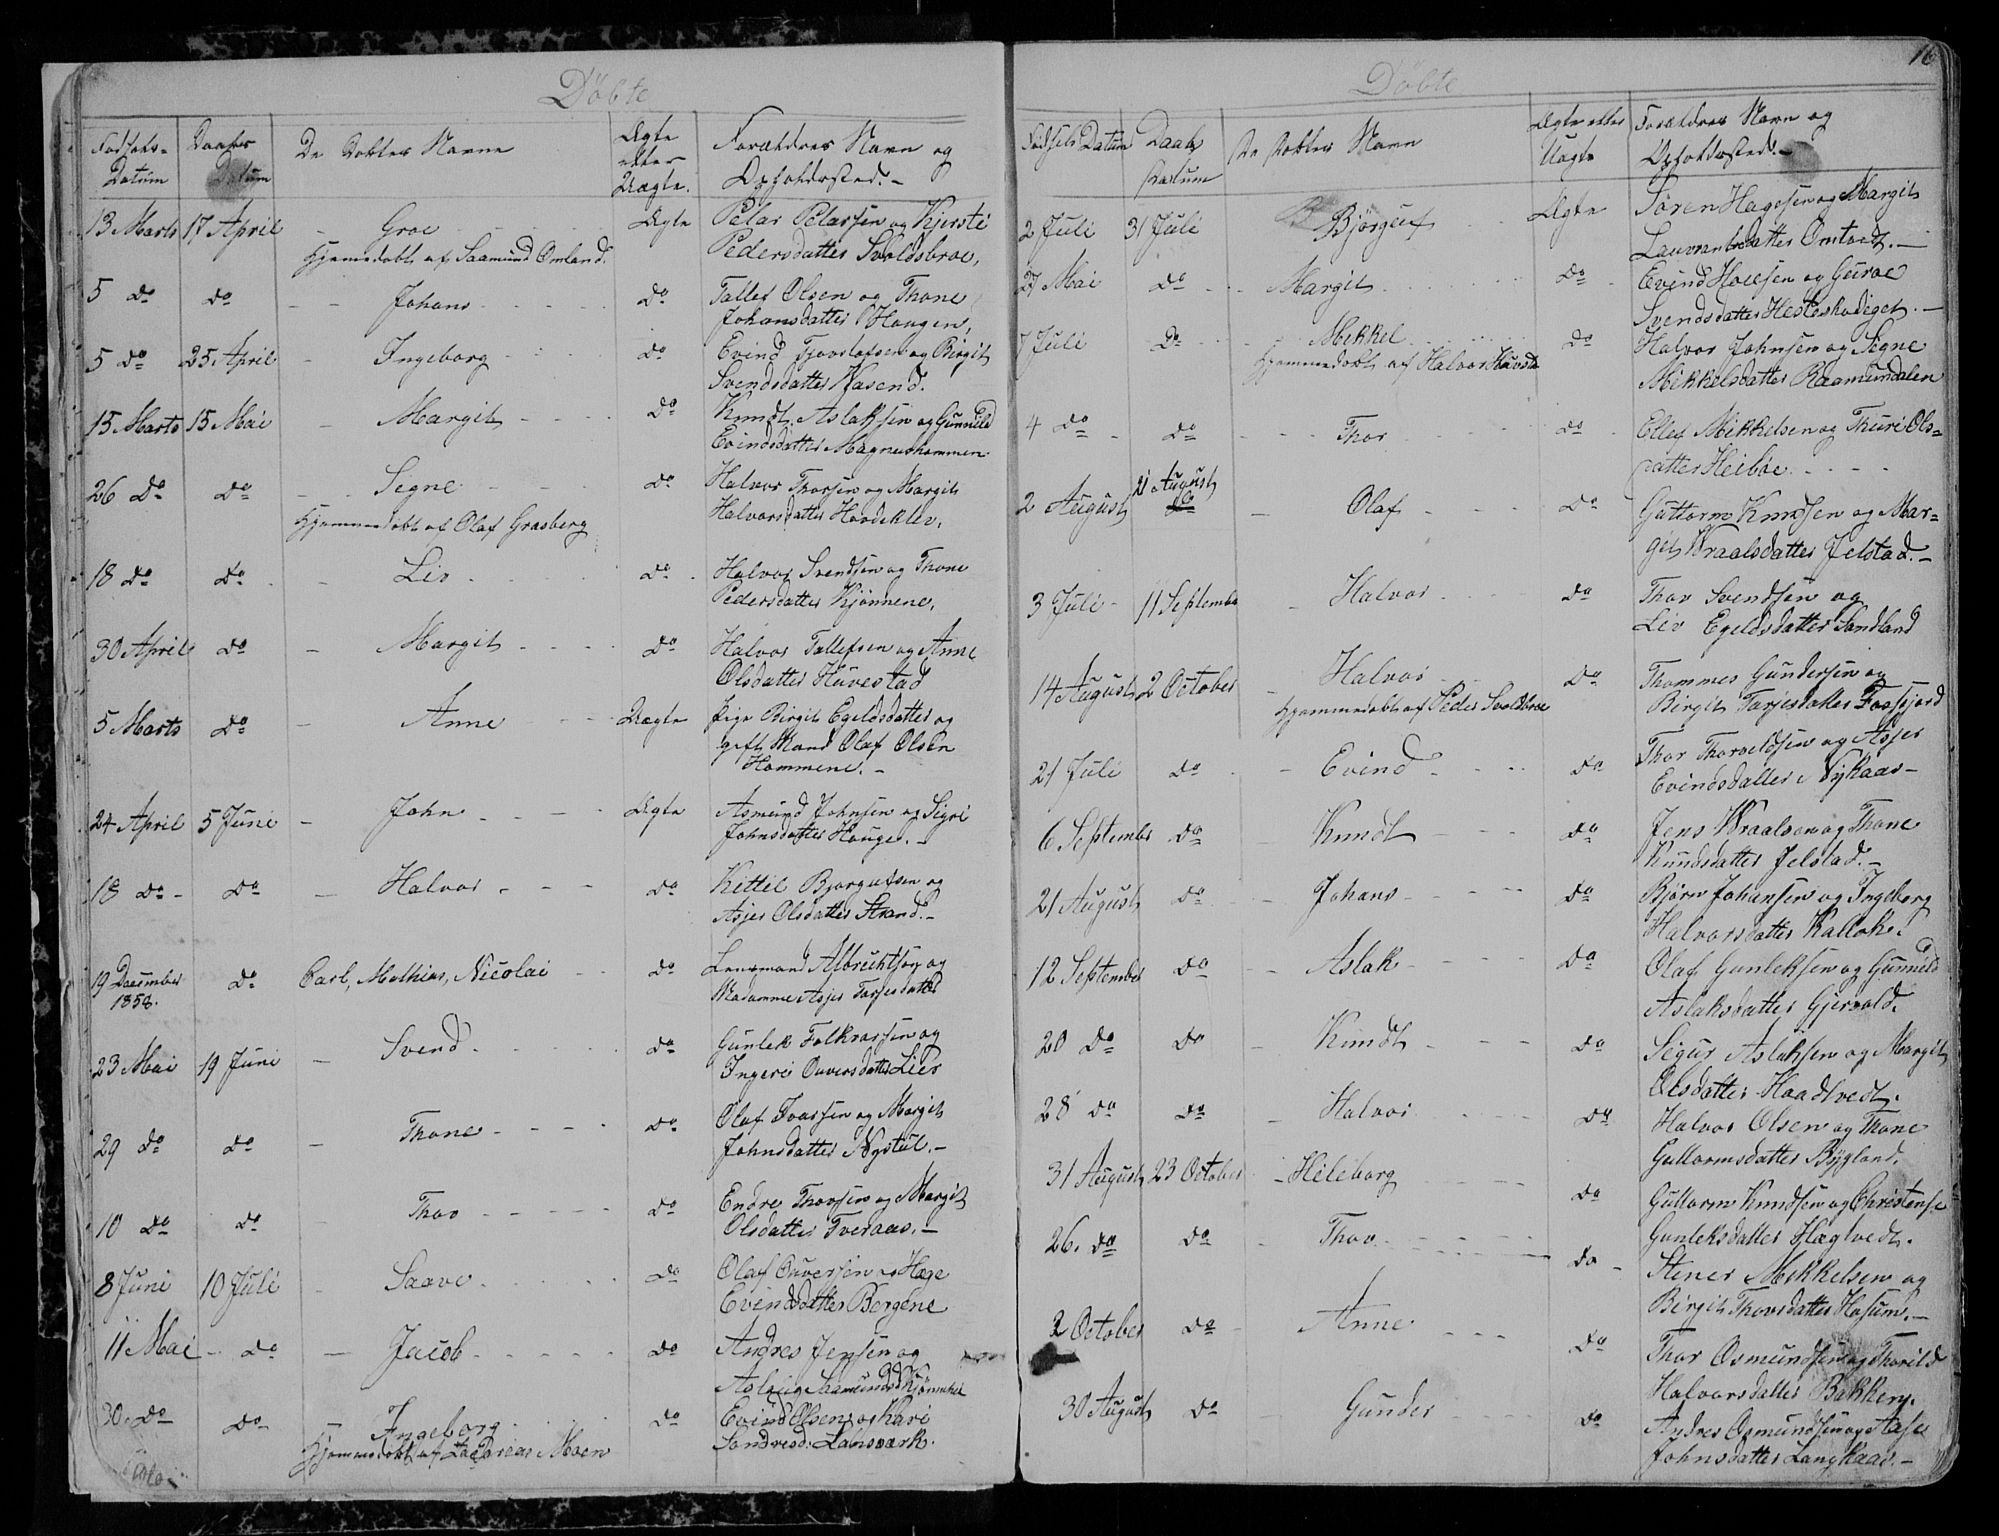 Döbte
Fødsels-Datum Daabs Datum De Döbtes Navne Ægte eller Uægte. Forældres Navn og Opholdssted.-
13 Marts 17 April - Groe Ægte Peter Petersen og Kjersti
Hjemmedöbt af Saamund Omland. Pedersdatter Svoldsbroe,
5 do do - - Johans do Tallef Olsen og Thone
Johansdatter Haugen,
5 do 25 April - Ingeborg do Evind Tjovslofsen og Birgit
Svendsdatter Kasend.
15 Marts 15 Mai - Margit do Knudt Aslaksen og Gunnild
Evindsdatter Magnushommen.
26 Do Do Segne do Halvor Thorsen og Margit
Hjemmedöbt af Olaf Grasberg Halvorsdatter Hovdeklev,
18 Do Do - Liv do Halvor Svendsen og Thone
Pedersdatter Kjönnene,
30 April do - Margit do Halvor Tallefsen og Anne
Olsdatter Huvestad
5 Marts do - Anne Uægte Pige Birgit Egeldsdatter og
gift Mand Olaf Olsen
Hommene. -
24 April 5 Juni - John Ægte Asmund Johnsen og Sigri
Johnsdatter Hauge. -
18 do - do - Halvor do Kittil Bjorgufsen og
Asjer Olsdatter Strand. -
19 December do Carl, Mathias, Nicolai do Lensmand Albrechtson og
1858. Madamme Asjer Tarjesdatter
23 Mai 19 Juni - Svend do Gunlek Folkvarsen og
Ingeri Ouversdatter Lier
29 do do - Thone do Olaf Ivarsen og Margit
Johnsdatter Nystul. -
10 do do - Thov do Endre Thovsen og Margit
Olsdatter Tveraas. -
8 Juni 10 Juli - Saave do Olaf Ouversen og Hæge
Evindsdatter Bergene
11 Mai - do - Jacob do Andres Jensen og
Aslaug Saamundsd Kjönnekei
30. do do - Ingeborg do Evind Olsen og Kari
Hjemmedöbt af Zacharias Moen Sondresd: Lahsværk.
16
Döbte
Fødsels Datum Daabs Datum De Döbtes Navn Ægte eller Uægte Forældres Navn og Opholdssted. -
2 Juli 31 Juli Björguf Ægte Søren Hagesen og Margit
Lauvrantsdatter Omtvedt. -
27 Mai do Margit do Evind Hoiesen og Guroe
Svendsdatter Hesteskodiget. -
7 Juli do Mikkel do Halvor Johnsen og Segne
Hjemmedöbt af Halvor Huvestad Mikkelsdatter Raamundalen
4 do - do Thor do Ellef Mikkelsen og Thuri Ols-
datter Heiboe
2 August 21 August - Olaf do Guttorm Knudsen og Mar-
git Vraalsdatter Jelstad. -
3 Juli - 11 September - Halvor do Thov Svendsen og
Liv Egeldsdatter Sandland
14 August 2 October - Halvor do Thommes Gundersen og
Hjemmedöbt af Peder Svoldsbroe Birgit Tarjesdatter Fossjord
21 Juli do - Evind do Thor Thoreldsen og Asjer
Evindsdatter Nykaas -
6 September do - Knudt do Jens Vraalsen og Thone
Knudsdatter Jelstad. -
21 August do - Johans do Björn Johansen og Ingeborg
Halvorsdatter Kallok.
12 September do - Aslak do Olaf Gunleksen og Gunnild
Aslaksdatter Gjervold.
20 Do do - Knudt do Sigur Aslaksen og Margit
Olsdatter Haadtvedt.
28 do do - Halvor do Halvor Olsen og Thone
Guttormsdatter Bygland.
31 August 23 October - Heleborg do Guttorm Knudsen og Christense
Gunleksdatter Hægtvedt.
26. do do - Thov do - Stener Mikkelsen og
Birgit Thovsdatter Hasum. -
2 October do - Anne do Thor Osmundsen og Thorild
Halvorsdatter Bakken.
30 August do - Gunder do Andres Osmundsen og Aase
Johnsdatter Langkaas. -